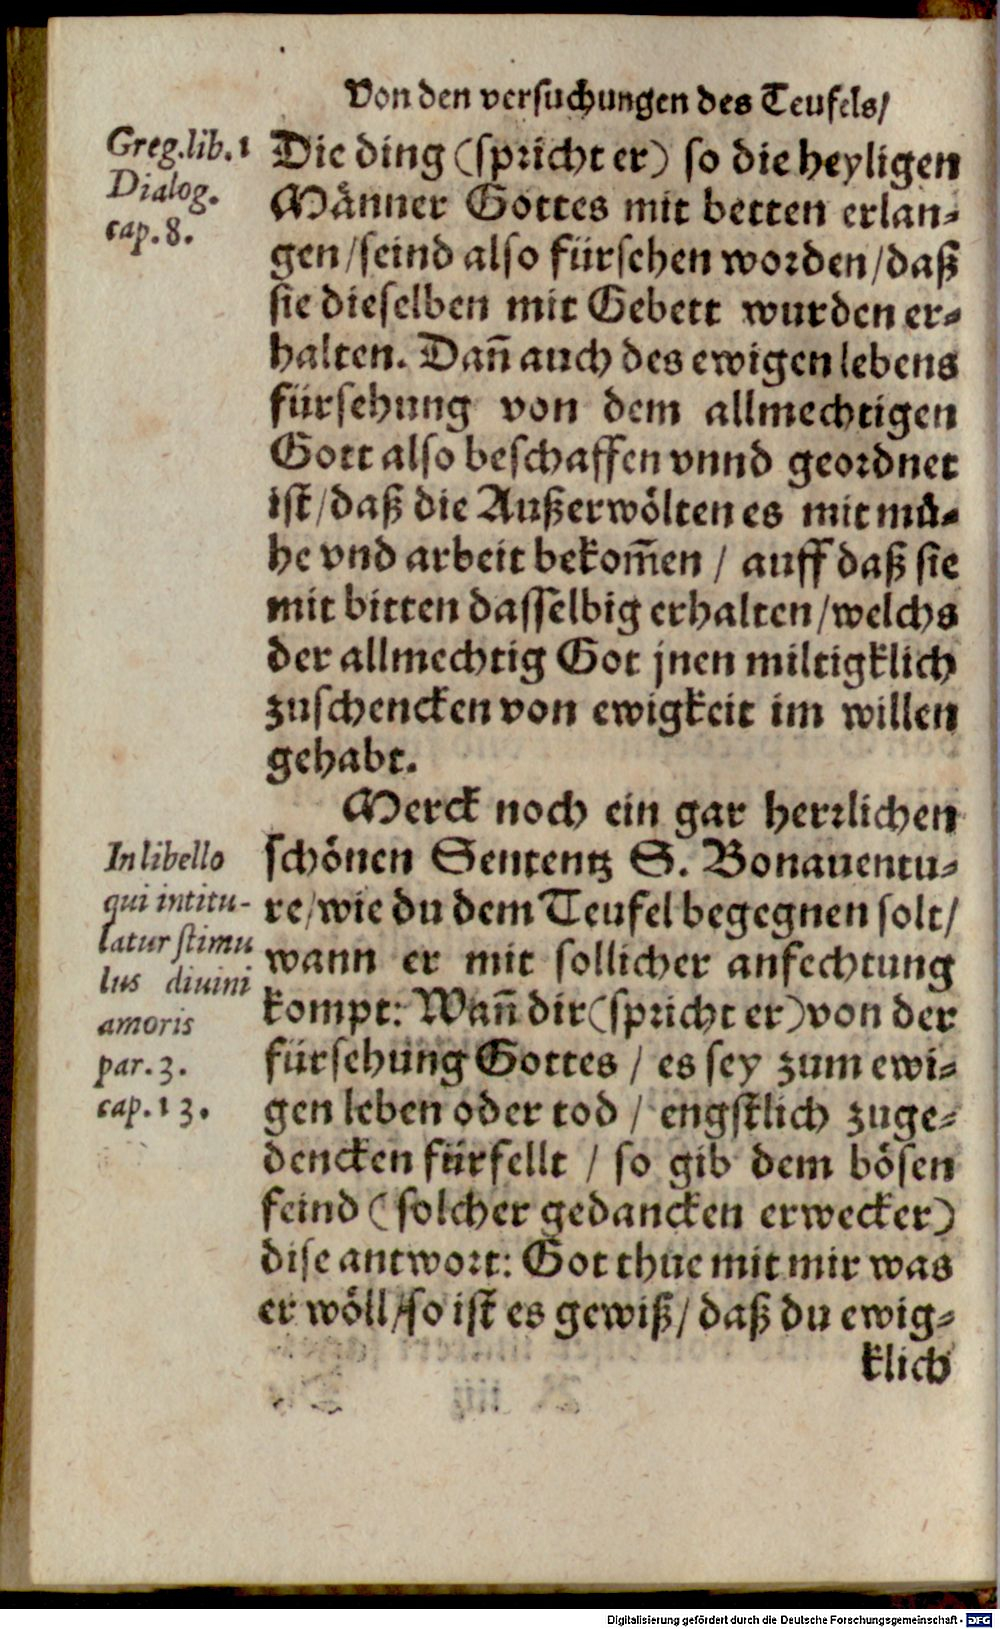 Von den versuchungen des Teufels/
Greg.lib.1
Dialog.
cap.8.
Die ding (spricht er) so die heyligen
Männer Gottes mit betten erlan-
gen/seind also fürsehen worden/daß
sie dieselben mit Gebett wurden er-
halten. Dañ auch des ewigen lebens
fürsehung von dem allmechtigen
Gott also beschaffen vnnd geordnet
ist/daß die Außerwölten es mit mü-
he vnd arbeit bekom̃en / auff daß sie
mit bitten dasselbig erhalten/welchs
der allmechtig Got jnen miltigklich
zuschencken von ewigkeit im willen
gehabt.
Merck noch ein gar herrlichen
In libello
qui intitu-
latur stimu
lus diuini
amoris
par.3.
cap.13.
schönen Sententz S. Bonauentu-
re/wie du dem Teufel begegnen solt/
wann er mit sollicher anfechtung
kompt: Wañ dir(spricht er)von der
fürsehung Gottes / es sey zum ewi-
gen leben oder tod / engstlich zuge-
dencken fürfellt / so gib dem bösen
feind (solcher gedancken erwecker)
dise antwort: Got thue mit mir was
er wöll/so ist es gewiß/daß du ewig-
klich
Digitalisierung gefördert durch die Deutsche Forschungsgemeinschaft - DFG